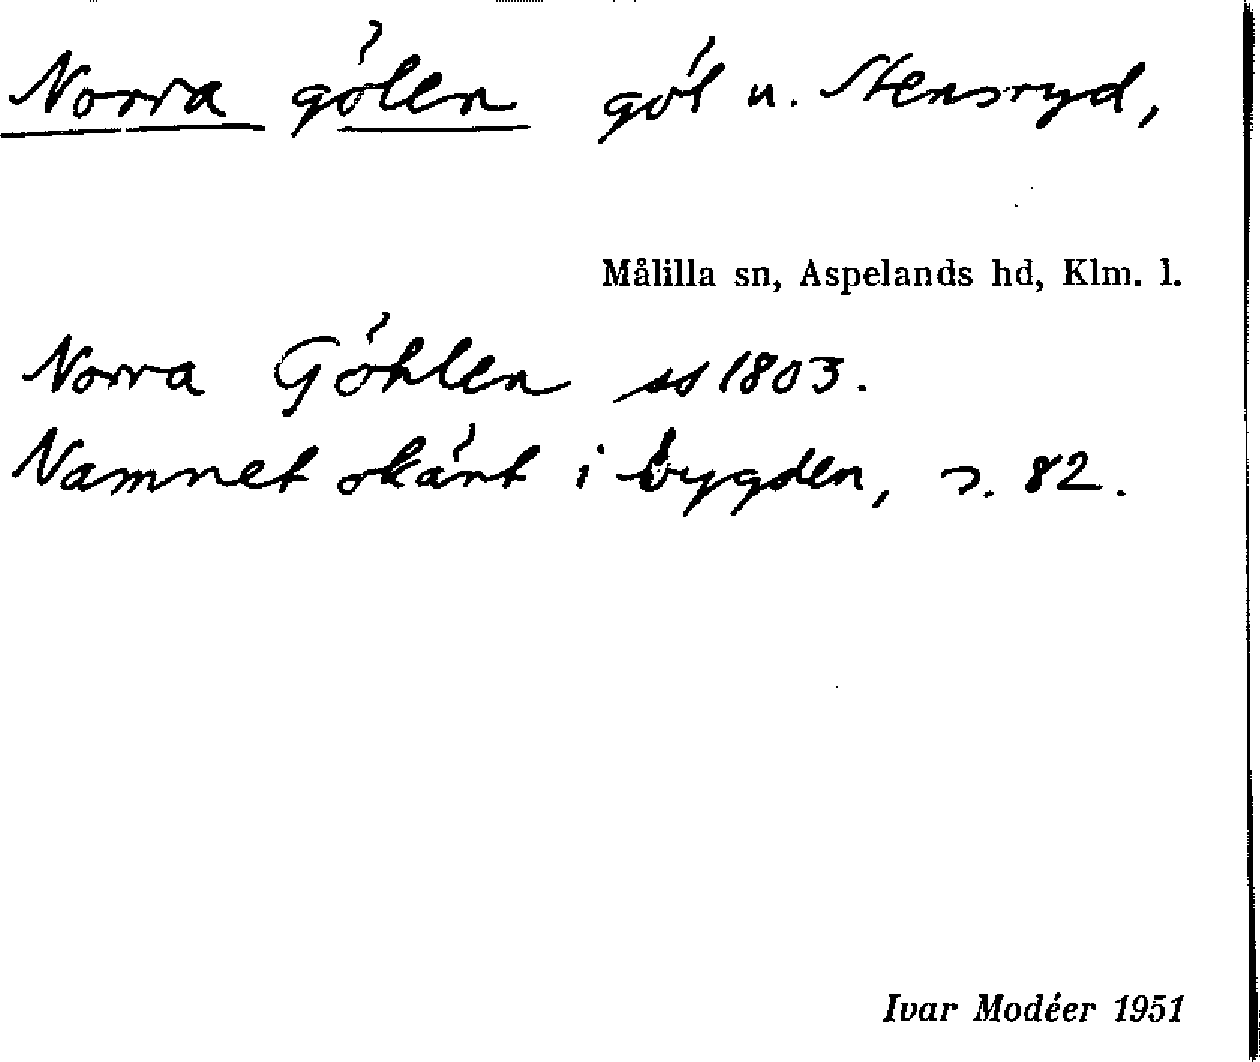 Norra gölen göl u. Stensryd,
Målilla sn, Aspelands hd, Klm. l.
Norra Göhlen ss 1803.
Namnet känt i bygden, s. 82.
Ivar Modéer 1951